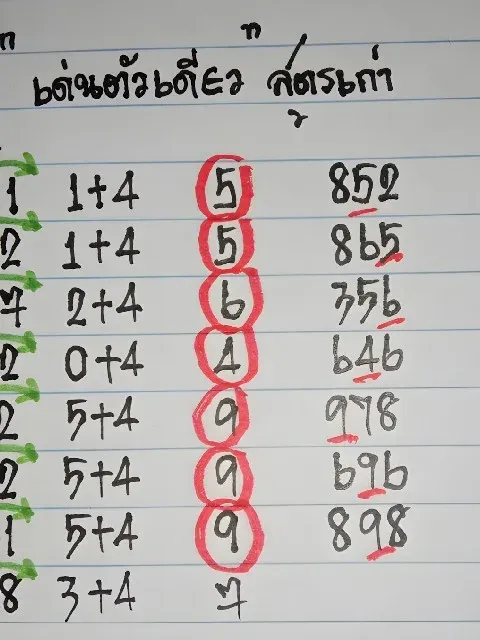 เด่นตัวเดียว สูตรเก่า
1 1+4 5 852
2 1+4 5 865
7 2+4 6 356
2 0+4 4 646
2 5+4 9 978
2 5+4 9 696
1 5+4 9 898
8 3+4 7